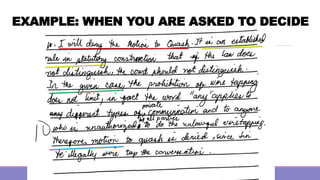 EXAMPLE: WHEN YOU ARE ASKED TO DECIDE
I will deny the Motion to Quash. It is an established
rule in statutory construction that if the law does
not distinguish, the court should not distinguish.
In the given case, the prohibition of wire tapping
does not limit, in fact the word "any" applies to
private
any different types of communication and to anyone
all parties
who is unauthorized to do the unlawful wiretapping.
Therefore, motion to quash is denied, since
illegally wire tap the conversation.